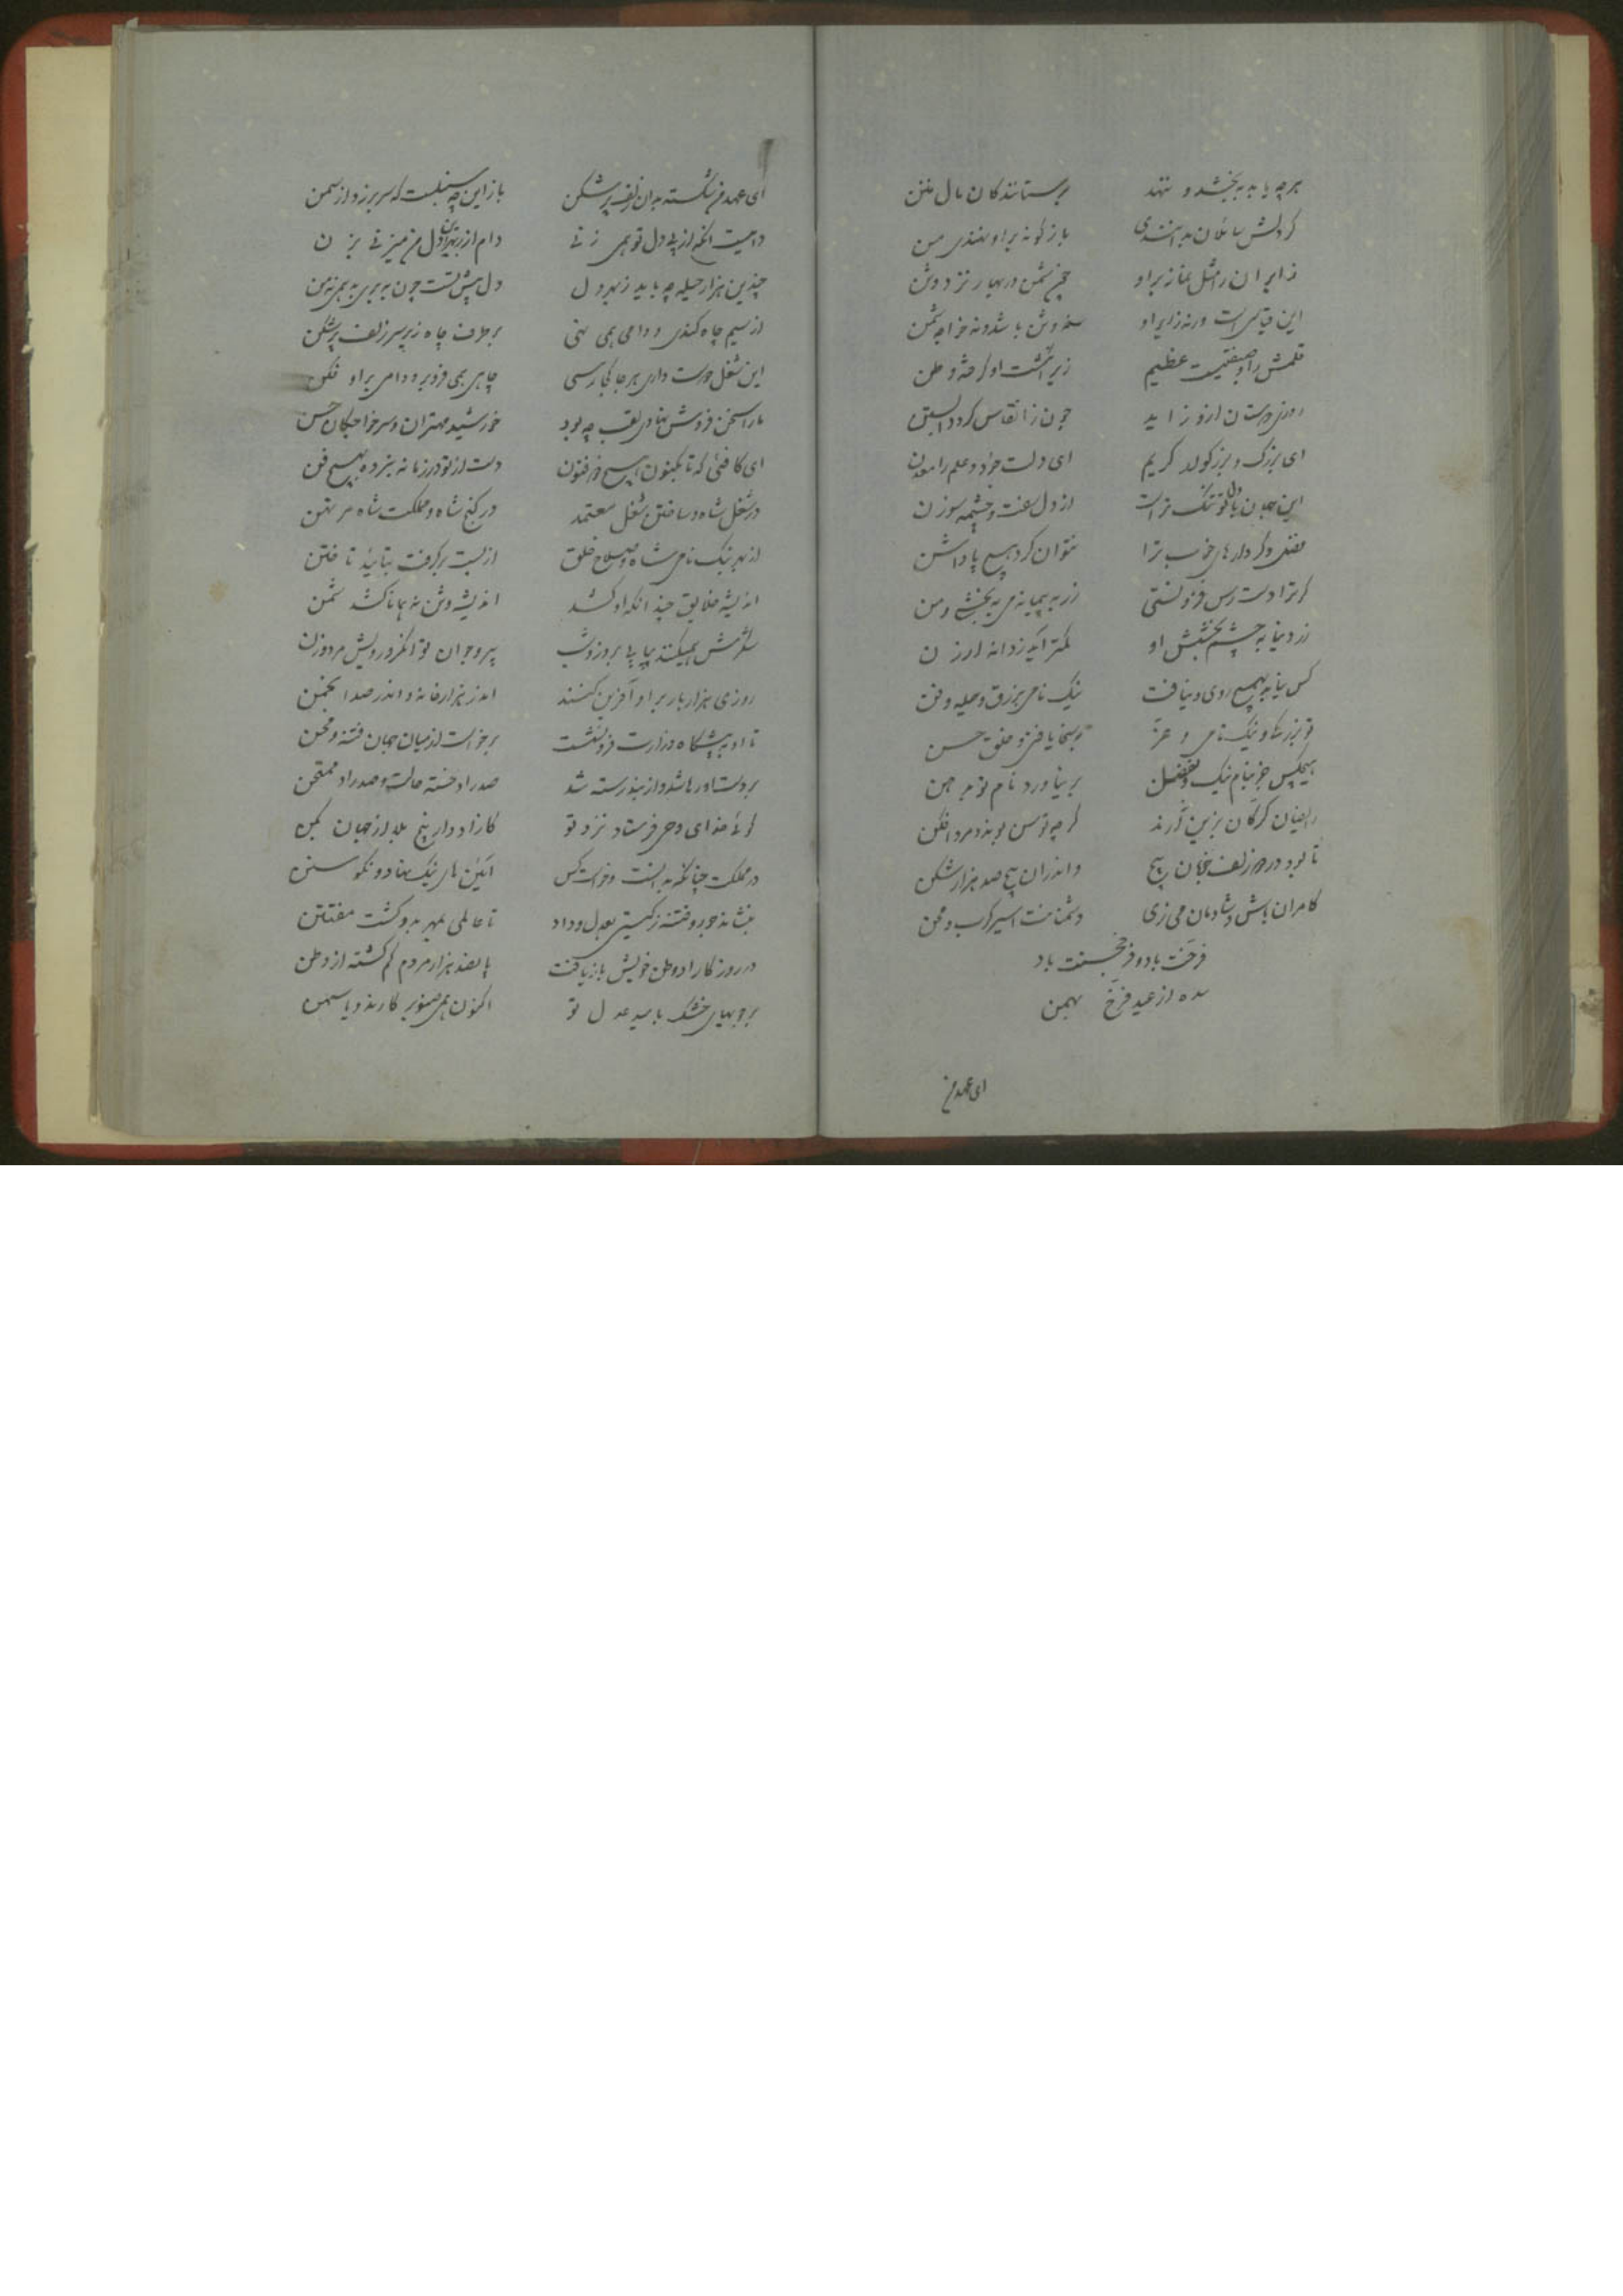 هر چه یابد ببخشد و ننهد بر ستانندکان مال منن
کر دلش سائلان بدانندی باز کونه بر او نهندی من
زایران را مثل نماز براو چون شمن در بهار نزد وثن
این قیاس است ورنه زایر او نه وثن باشد و نه خواجه شمن
قلمش را و صفتیست عظیم زیر انکشت او کرفته وطن
روزی دوستان ازو زاید چون ز انقاس کردد آبستن
ای بزرک و بزرکوار و کریم ای دلت جود و علم را معدن
این جهان با دل تو تنک تر است از دل سفت و چشمه سوزن
فضل و کردارهای خوب ترا نتوان کرد هیچ پاداشن
کر ترا دست رس فزونستی زر به پیمانه می ببخشی و من
زر و دنیا به چشم بخشش او کمتر آید ز دانه ارزن
کس نیابد بهیچ روی و نیافت نیک نامی بزرق و حیله و فن
تو بزرکی و نیک نامی و عز بسخا یافتی و خلق حسن
هیچکس جز بنام نیک و بفضل بر نیاورد نام تو بدهن
رایضان کرکان بزین آرند کر چه توسن بوند و مرد افکن
تا بود در دو زلف خوبان پیچ واندران پیچ صد هزار شکن
کامران باش و شادمان می زی دشمنانت اسیر کرب و محن
فرخت باد و فرخجستت باد
سده از عید فرخ بهمن
ای عهد من
ای عهد من شکسته بدان زلف پرشکن باز این چه سنبلست که سر برزد از سمن
دامیست انکه از پی دل تو همی زنی دام از برای این دل من میزنی بزن
چندین هزار حیله چه باید ز بهر دل دل پیش تست چون نه بری به همی زین
از سیم چاه کندی و دامی همی نهی بر طرف چاه زیر سر زلف پرشکن
این شغل دوست داری هر جا کجا رسی چاهی همی فرو بر و دامی براو فکن
ما را سخن فروش نهادی لقب چه بود خورشید مهتران و سر خواجکان حسن
ای کافئی که تا بکنون هیچ ذو فنون دست از تو در زمانه نبرده بهیچ فن
در شغل شاه و ساختن شغل معتمد در کنج شاه و مملکت شاه مؤتمن
از بهر نیک نامی شاه و صلاح خلق از لب برکرفت بتابید تا ختن
اندیشه خلایق چندانکه او کشد اندیشه وثن نه همانا کشد شمن
شکرش همیکنند پیاپی بروز و شب پیر و جوان توانکر و درویش مرد و زن
روزی هزار بار براو آفرین کنند اندر هزار خانه و اندر صد انجمن
تا او به پیشکاه وزارت فرو نشست برخواست از میان جهان فتنه و محن
بر دست او رها شد و از بند رسته شد صد راد خسته حالت و صد راد ممتحن
کوئی خدای وحی فرستاد نزد تو کازاد وار بیخ بلا از جهان بکن
در مملکت چنانکه بدانست و خواست کس آئین های نیک نهاد و نکو سنن
بنشاند جور و فتنه ز کیتی بعدل و داد تا عالمی بمهر بدو کشت مفتتن
در روزکار او وطن خویش باز یافت پانصد هزار مردم کم کشته از وطن
بر جویهای خشک بامید عدل تو اکنون همی صنوبر کارند و یاسمن